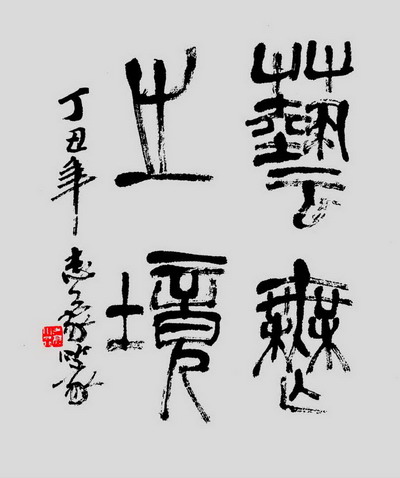 藝無
止境
丁丑年